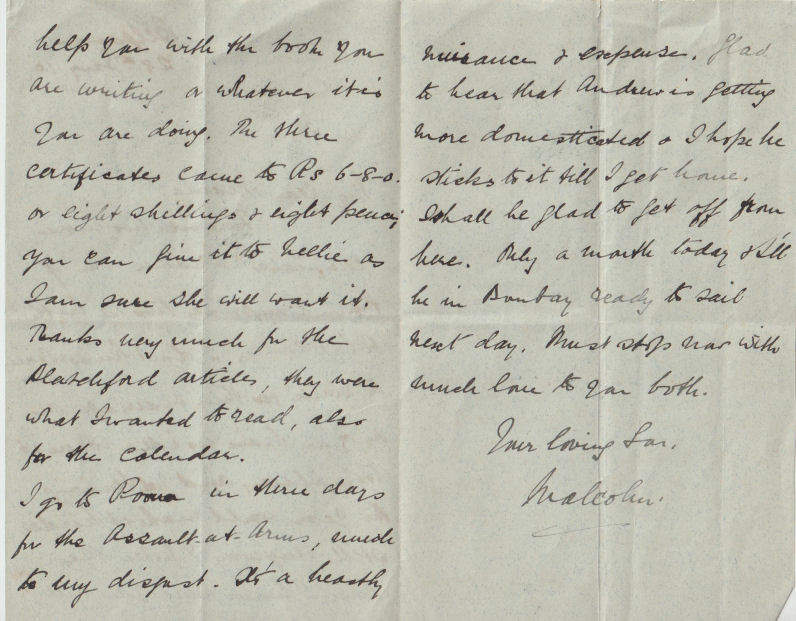 help you with the book you
are writing or whatever it is
you are doing. The three
certificates came to Rs 6-8-0.
or eight shillings & eight pence;
you can give it to Nellie as
I am sure she will want it.
Thanks very much for the
Blatchford articles, they were
what I wanted to read, also
for the calendar.
I go to Poona in three days
for the Assault-at-Arms, much
to my disgust. It's a beastly
nuisance & expense. Glad
to hear that Andrew is getting
more domesticated & I hope he
sticks to it till I get home.
I shall be glad to get off from
here. Only a month today & I'll
be in Bombay ready to sail
next day. Must stop now with
much love to you both.
Your loving Son.
Malcolm.